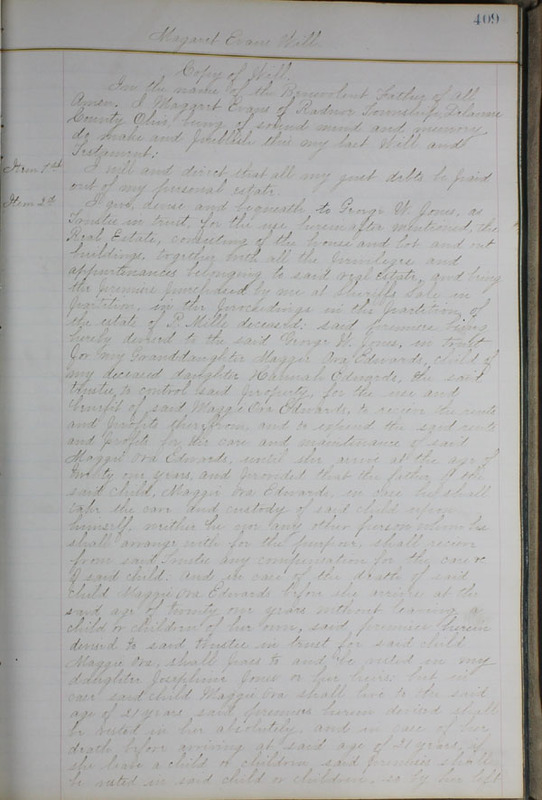 409
Magaret Evans Will.
Copy of Will.
In the name of the Benevolent Father of All
Amen. I Maggart Evans of Radnor Township, Delaware
County Ohio, being of sound mind and memory
do make and Publish this my last Will and
Testament:
Item 1st I will and direct that all my just debts be paid
out of my personal estate
Item 2d I give, devise and bequeath to George W. Jones, as
Trustee in trust, for the use hereinafter mentioned, the
Real Estate, consisting of the house and lot and out
buildings, together with all the priviliges and
appurtenances belonging to said real estate, and being
the premise purchased by me at Sheriffs Sale in
Partition, in the proceedings in the Partition of
the estate of P. Mills deceased: said premises being
hereby devised to the said George W. Jones, in trust
for my Granddaughter Maggie Ora Edwards, child of
my deceased daughter Hannah Edwards, the said
trustee, to control said property, for the use and
benefit of said Maggie Ora Edwards, to receive the rents
and profits therefrom and to expend the said rents
and profits for the care and maintenance of said
Maggie Ora Edwards, until she arrive at the age of
twenty one years, and provided that the father of the
said child, Maggie Ora Edwards, in case he shall
take the care and custody of said child upon
himself, neither he nor any other person whom he
shall arrange with for the purpose, shall receive
from said Trustee any compensation for the care
of said child. And in case of the death of said
child Maggie Ora Edwards before she arrives at the
said age of twenty one years without leaving a
child or children of her own, said premises herein
devised to said trustee in trust for said child
Maggie Ora, shall pass to and be vested in my
daughter Josephine Jones or her heirs but in
case said child Maggie Ora shall live to the said
age of 21 years said premises herein devised shall
be vested in her absolutely. and in case of her
death before arriving at said age of 21 years, if
she leave a child or children said premises shall
be vested in said child or children, so by her left